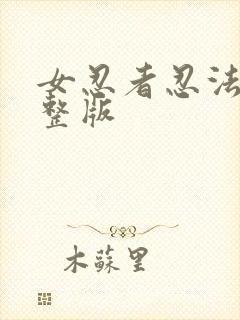 女忍者忍法
整版
木蘇里